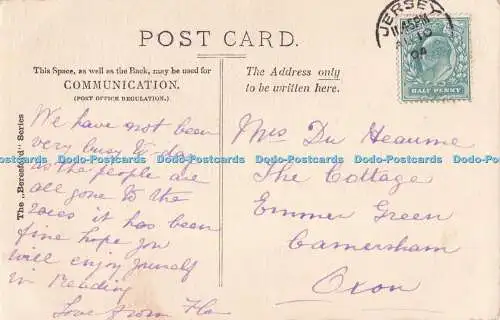 POST CARD.
This Space, as well as the Back, may be used for
COMMUNICATION.
(POST OFFICE REGULATION.)
The Address only
to be written here.
The "Beresford" Series
JERSEY
HALF PENNY
We have not been
very busy to-day
as the people are
all gone to the
races it has been
fine hope you
will enjoy yourself
in Reading
Love from
Mrs Du Heaume
The Cottage
Emmer Green
Caversham
Oxon
Dodo-Postcards Dodo-Postcards Dodo-Postcards Dodo-Postcards Dodo-Postcards